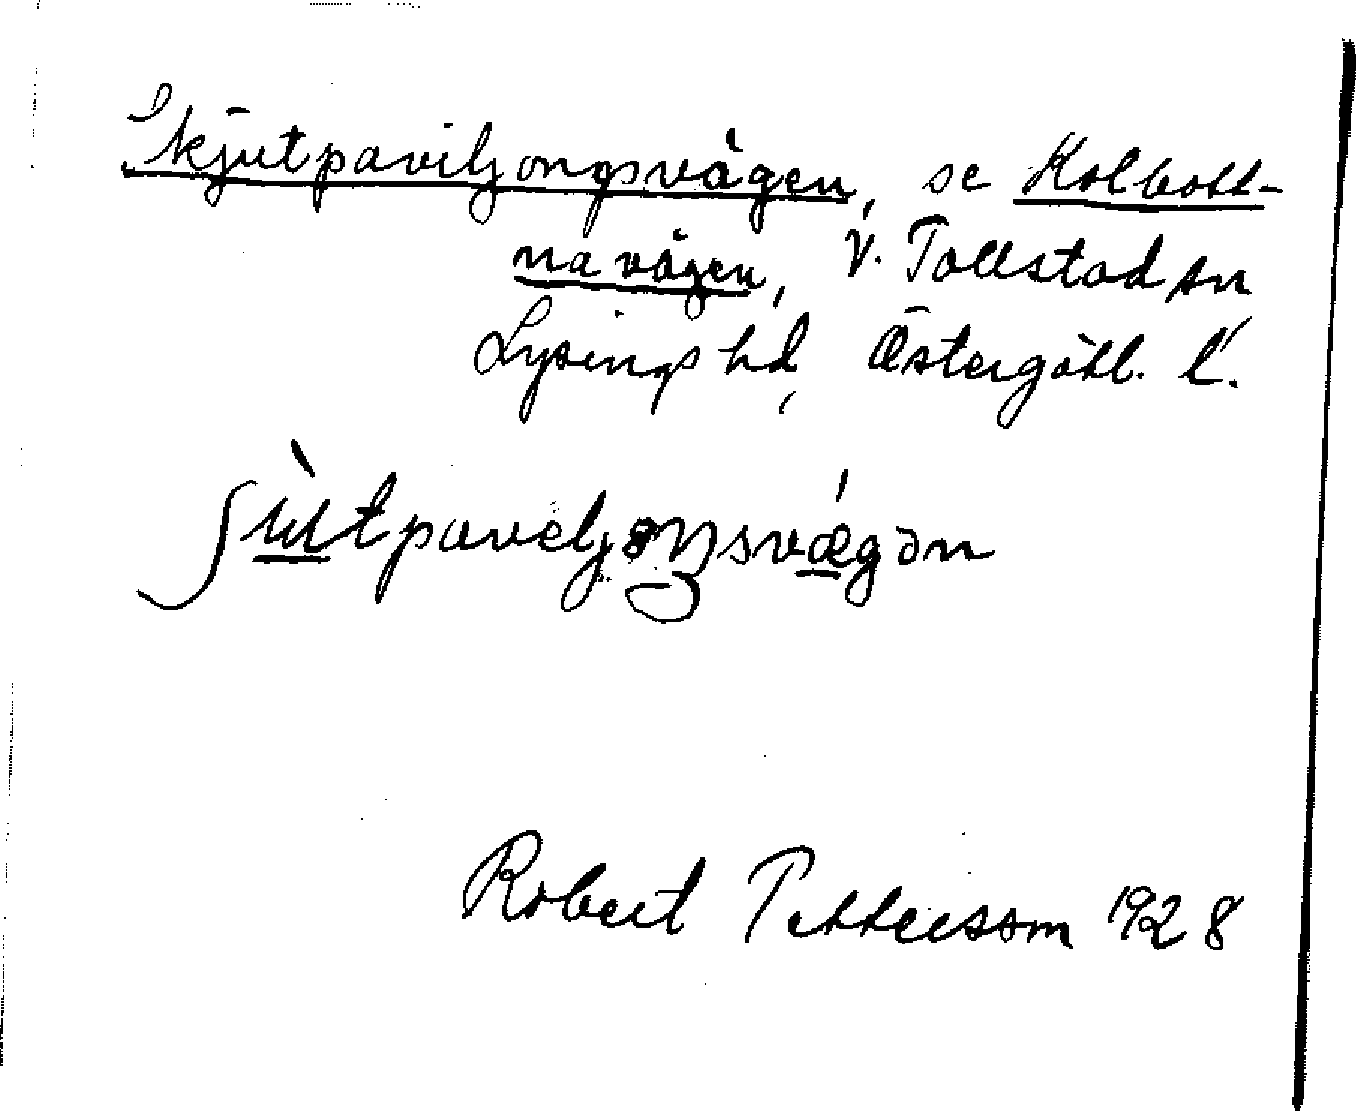 Skjutpaviljongsvägen, se Kolbott-
na vägen, V. Tollstad sn
Lysings hd, Östergötl. l.
ʃùtpaveljɔŋsvǽgən
Robert Pettersson 1928